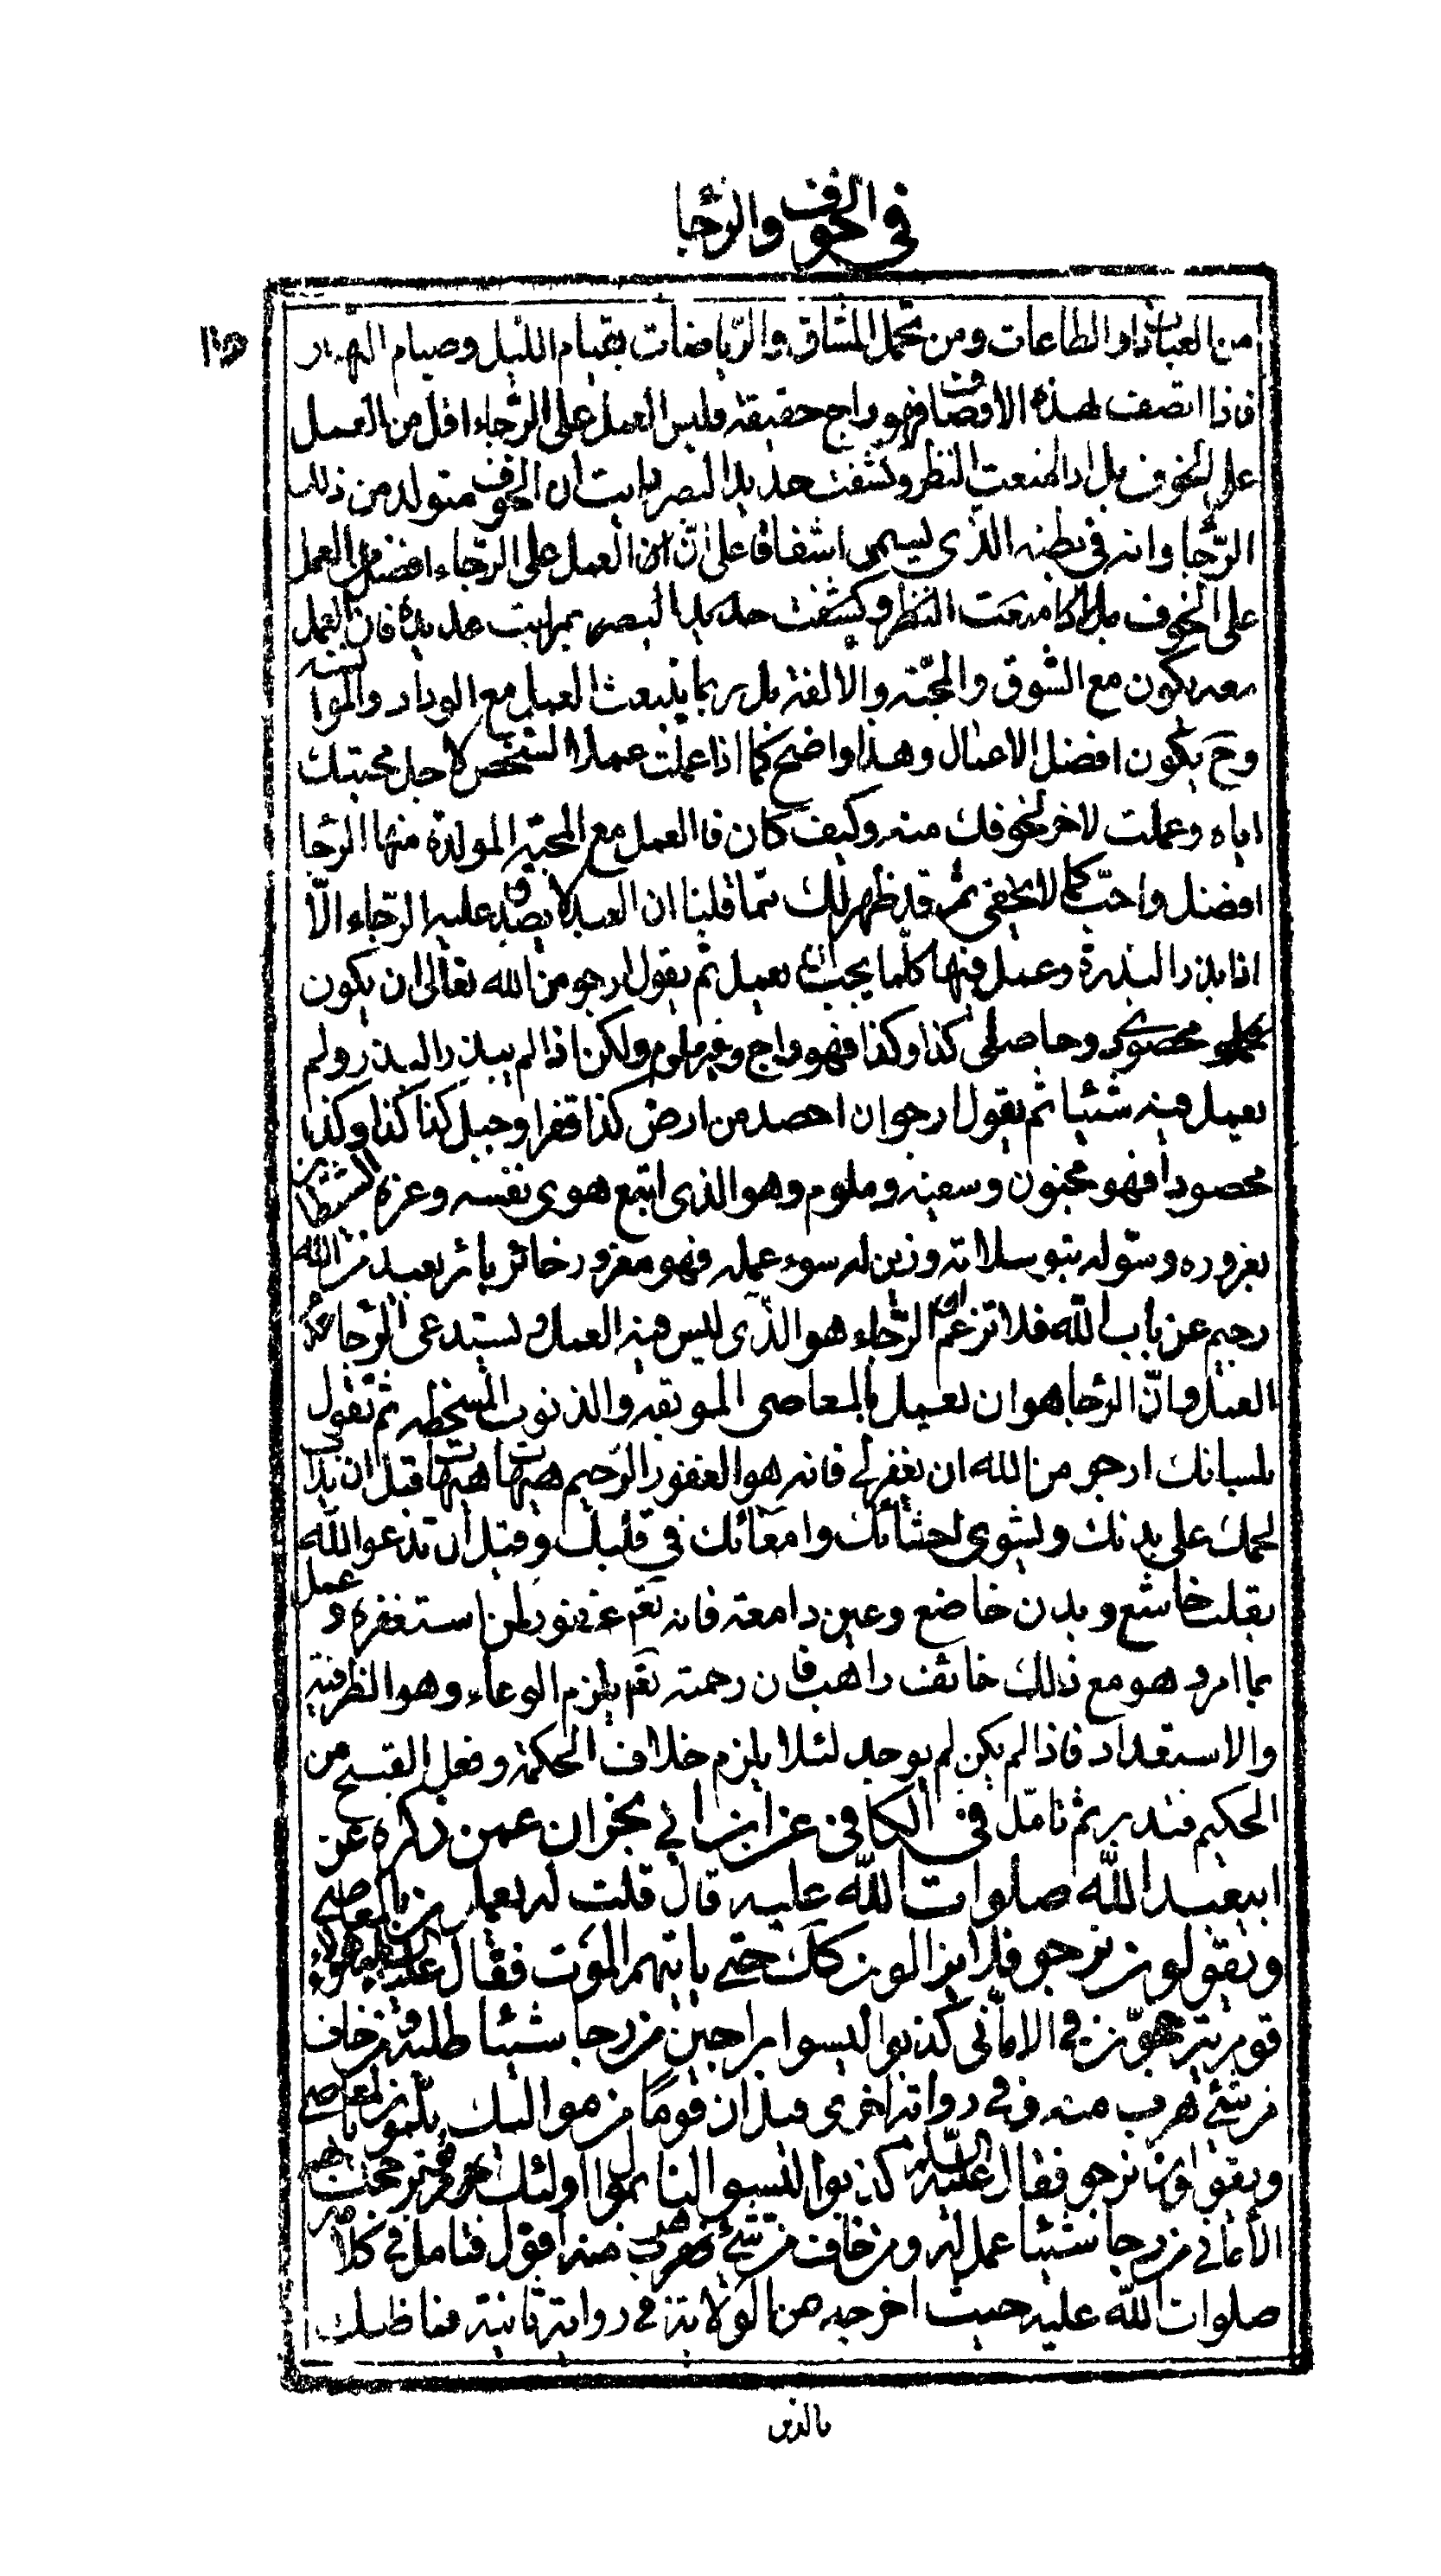 في الخوف والرجا
من العبادات والطاعات ومن تحمل المشاق والرّياضات بقيام الليل وصيام النهار
فاذا اتصفت لهذه الاوصاف فهو راج حقيقة وليس العمل على الرّجاء اقل من العمل
على الخوف بل اذا امنعت النظر وكشفت حديد البصر رايت ان الخوف متولد من ذلك
الرّجا وانه في بطنه الذى يسمى اشفاقا على انّ العمل على الرّجاء افضل من العمل
على الخوف بل اذا منعت النظر وكشفت حديد البصر رايت حديده فان العمل
معه يكون مع الشوق والمحبّة والالفة بل ربما ينبعث العمل مع الوداد والموانسة
وح يكون افضل الاعمال وهذا واضح كما اذا عملت عملا الشخص لاجل محبتك
اياه وعملت لاخر لخوفك منه وكيف كان فالعمل مع المحبة المولدة منها الرجا
افضل واحبّ كما لا يخفى ثم قد ظهر لك ممّا قلنا ان العبد لا يصدق عليه الرّجاء الّا
اذا بذر البذرة وعمل فيها كلّما يجب ان يعمل ثم يقول ارجو من الله تعالى ان يكون
محصودى وحاصلى كذا وكذا فهو راج وغير ملوم ولكن اذا لم يبذر البذر ولم
يعمل فيه شيئا ثم يقول ارجو ان احصد من ارض كذا قفرا وجبل كذا كذا وكذا
محصودا فهو مجنون وسفيه وملوم وهو الذى اتبع هوى نفسه وغره الشيطان
بغروره وسوّله بتسويلاته وزين له سوء عمله فهو مغرور خائر بائر بعيد من الله
رجيم عن باب الله فلا تزعم ان الرّجاء هو الذّى ليس فيه العمل ويستدعى الرّجا عدم
العمل وانّ الرّجا هو ان يعمل بالمعاصى الموبقه والذنوب المسخطه ثم تقول
بلسانك ارجو من الله ان يغفر لى فانه هو الغفور الرّحيم هيهات هيهات قبل ان يذاب
لحمك على بدنك ويشوى احشائك وامعائك في قلبك وقبل ان تدعو الله
بقلب خاشع وبدن خاضع وعين دامعة فانه تعم عفو لمن استغفره وعمل
بما امر وهو مع ذلك خائف راهب فان رحمته تعم يلزم الوعاء وهو الظرفية
والاستعداد فاذا لم يكن لم يوجد لئلا يلزم خلاف الحكمة وفعل القبيح من
الحكيم فتدبر ثم تامّل في الكافى عن ابن ابي نجران عمن ذكره عن
ابيعبد الله صلوات الله عليه قال قلت له يعملون بالمعاصى
ويقولون نرجو فلا يزالون كك حتى ياتيهم الموت فقال عليه السلم هؤلاء
قوم يترجّحون في الامانى كذبوا ليسوا براجين من رجا شيئا طلبه ومن خاف
من شئ هرب منه وفي رواية اخرى قيل ان قوما من مواليك يلمّون بالمعاصى
ويقولون نرجو فقال عليه السّلم كذبوا ليسوا لنا بموال اولئك قوم ترجحت بهم
الامانى من رجا شيئا عمل له ومن خاف من شئ هرب منه اقول فتامل في كلامه
صلوات الله عليه حيث اخرجه من الولاية في رواية ثانية فما ظنك
بالذين